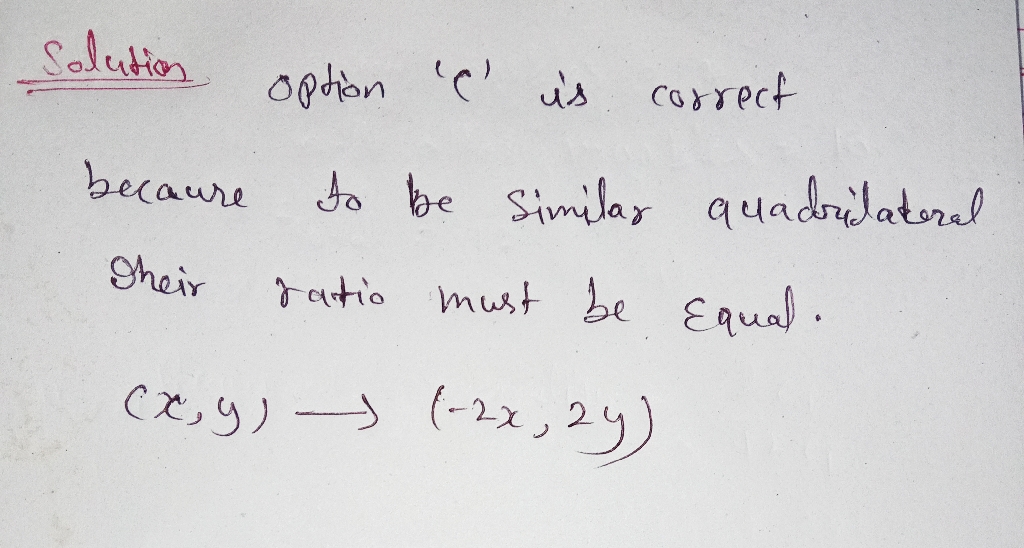 Solution
option 'C' is correct
because to be similar quadrilateral
their ratio must be Equal.
(x, y) → (-2x, 2y)